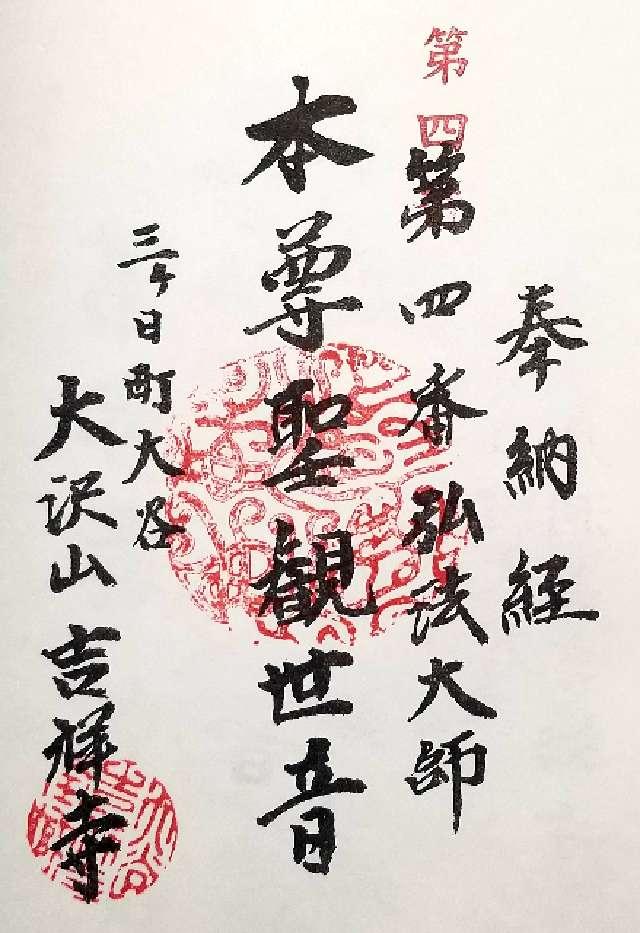 奉納経
第四
第四番 弘法大師
本尊聖観世音
三ケ日町大谷
大沢山 吉祥寺